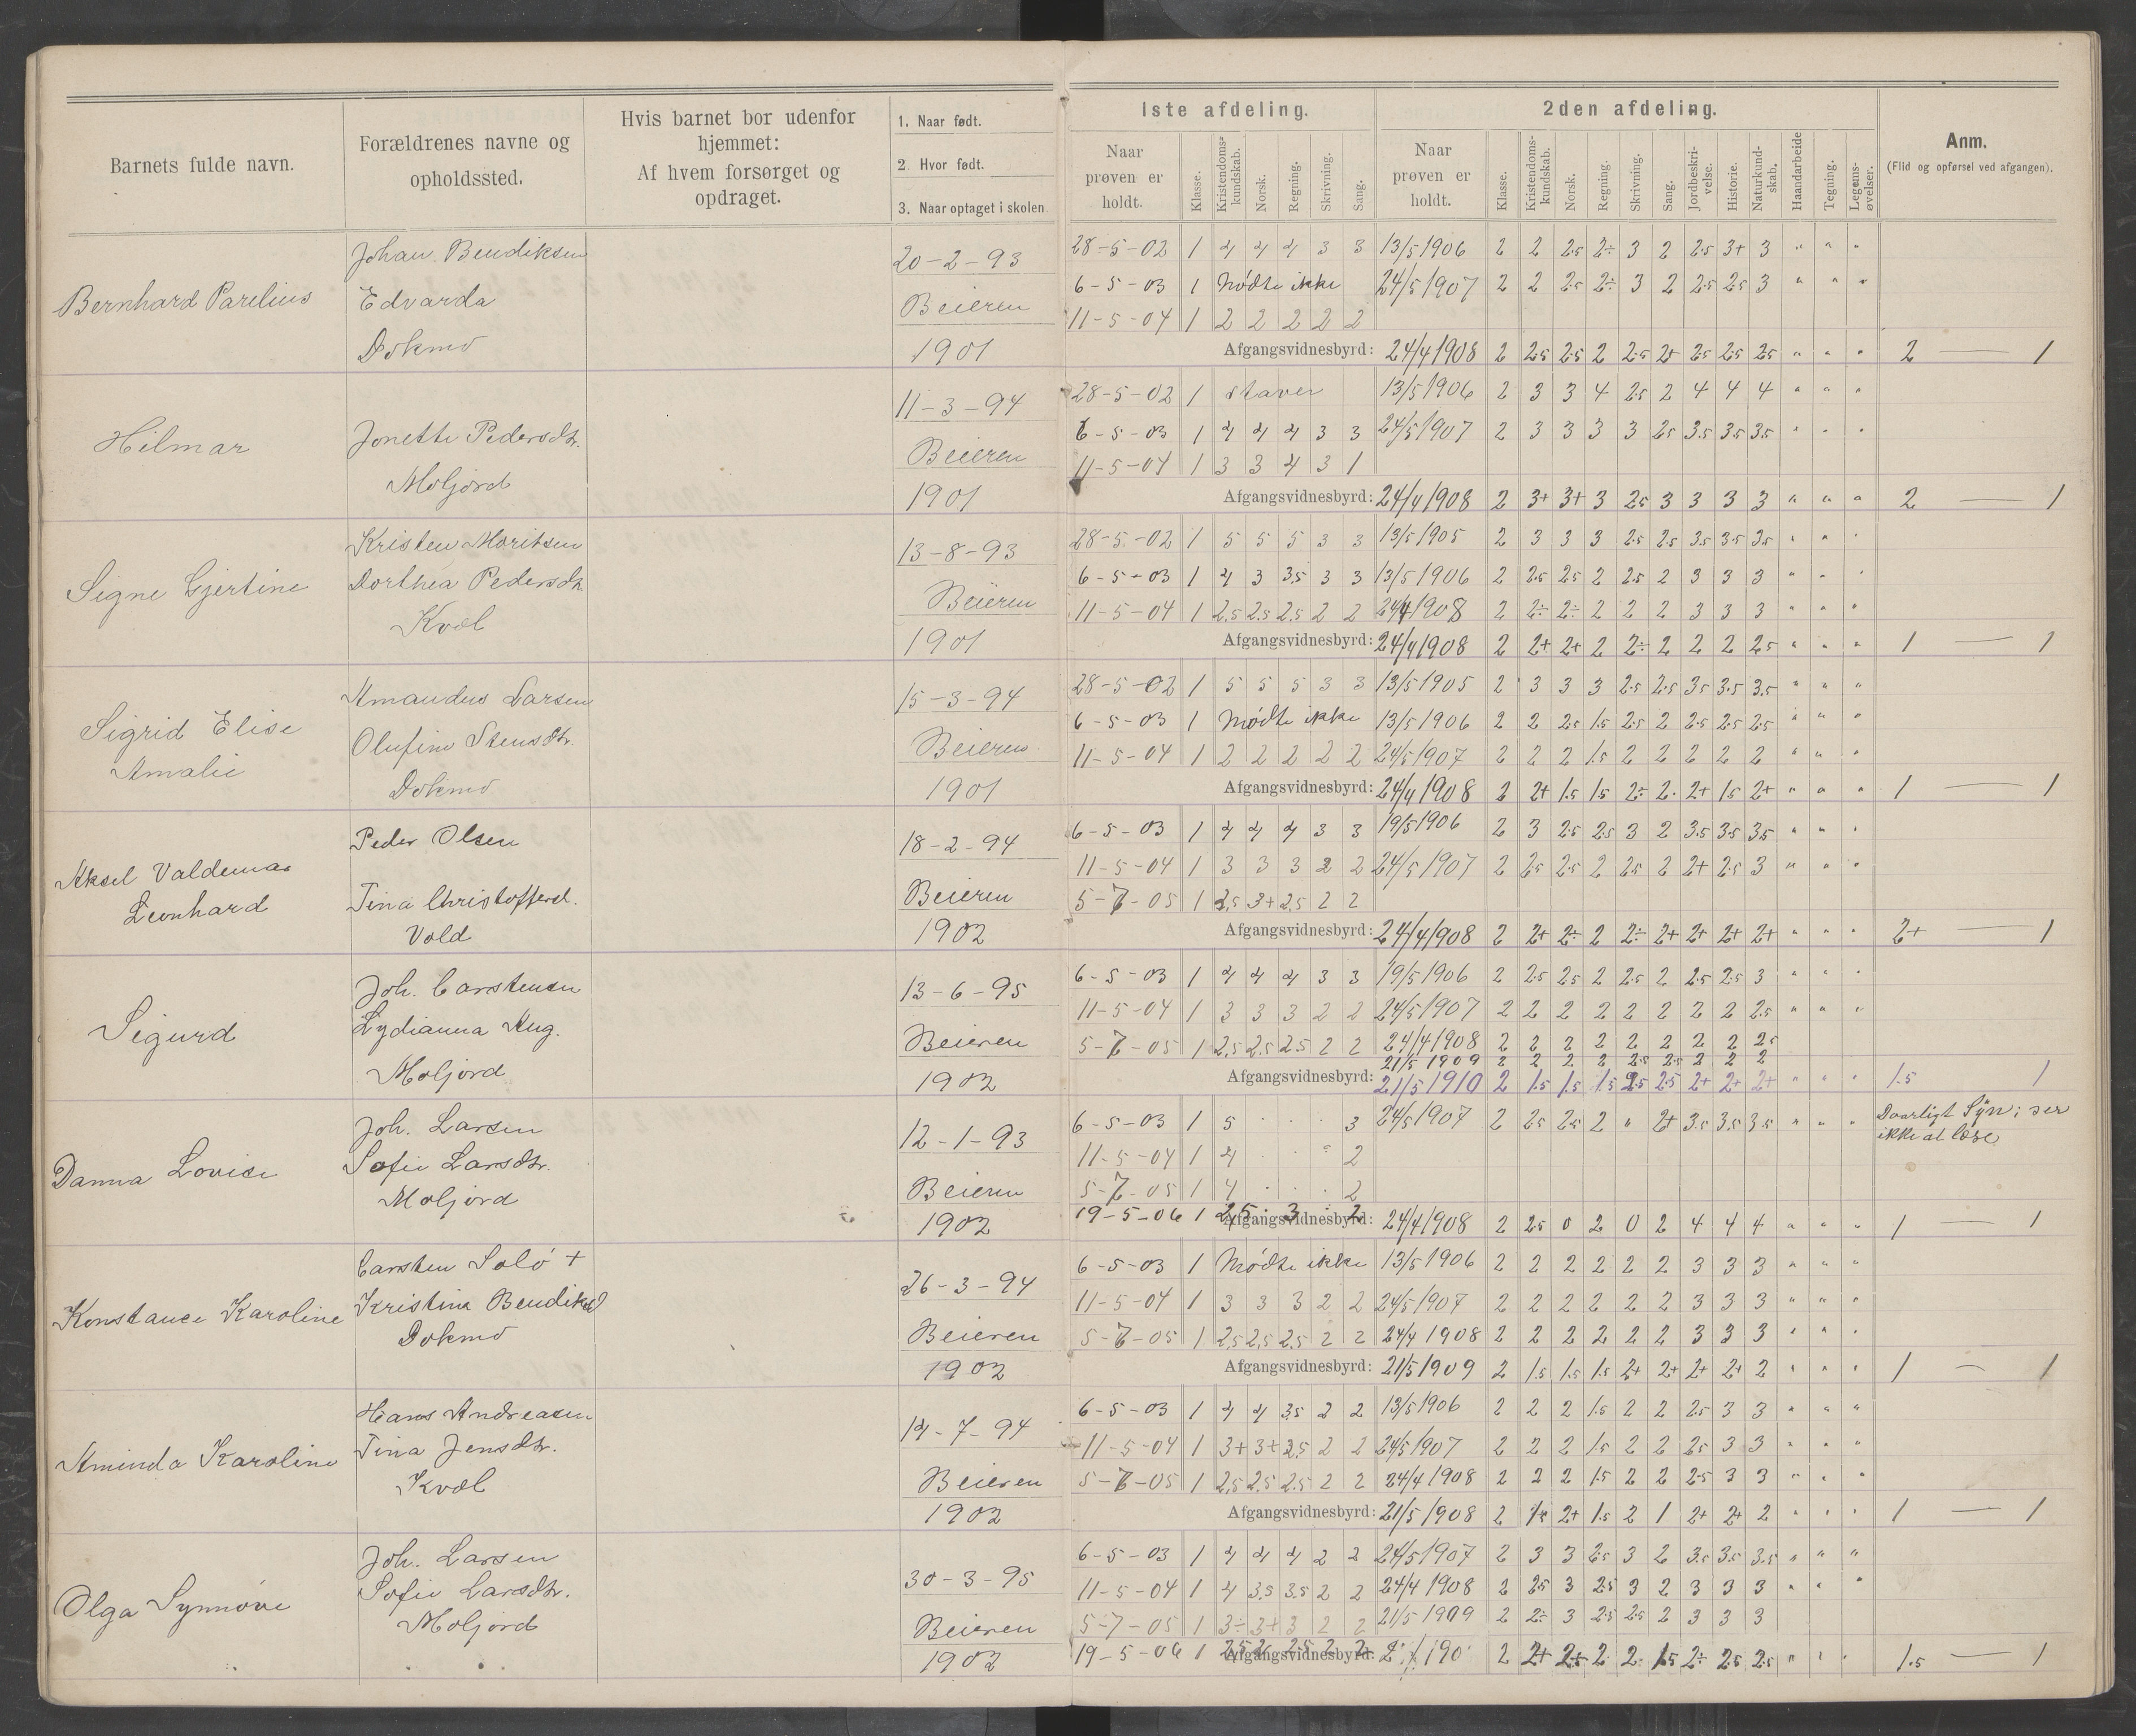 Barnets fulde navn.
Forældrenes navne og opholdssted.
Hvis barnet bor udenfor hjemmet:
Af hvem forsørget og opdraget.
1. Naar født.
2. Hvor født.
3. Naar optaget i skolen
1ste afdeling.
Naar prøven er holdt.
Klasse.
Kristendoms-kundskab.
Norsk.
Regning.
Skrivning.
Sang.
2den afdeling.
Naar prøven er holdt.
Klasse.
Kristendoms-kundskab.
Norsk.
Regning.
Skrivning.
Sang.
Jordbeskri-velse.
Historie.
Naturkund-skab.
Haandarbeide
Tegning.
Legems-øvelser.
Anm.
(Flid og opførsel ved afgangen).
Bernhard Parelius
Johan Bendiksen
Edvarda
Dokmo
20-2-93
Beieren
1901
28-5-02 1 4 4 4 3 3 13/5 1906 2 2 2.5 2÷ 3 2 2.5 3+ 3 " " "
6-5-03 1 Mødte ikke 24/5 1907 2 2 2.5 2÷ 3 2 2.5 2.5 3 " " "
11-5-04 1 2 2 2 2 2
Afgangsvidnesbyrd: 24/4 1908 2 2.5 2.5 2 2.5 2+ 2.5 2.5 2.5 " " " 2 — 1
Hilmar
Jonette Pedersdtr.
Moljord
11-3-94
Beieren
1901
28-5-02 1 staver 13/5 1906 2 3 3 4 2.5 2 4 4 4 " " "
6-5-03 1 4 4 4 3 3 24/5 1907 2 3 3 3 3 2.5 3.5 3.5 3.5 " " "
11-5-04 1 3 3 4 3 1
Afgangsvidnesbyrd: 24/4 1908 2 3+ 3+ 3 2.5 3 3 3 3 " " " 2 — 1
Signe Gjertine
Kristen Moritsen
Dorthea Pedersdtr.
Kvæl
13-8-93
Beieren
1901
28-5-02 1 5 5 5 3 3 13/5 1905 2 3 3 3 2.5 2.5 3.5 3.5 3.5 " " "
6-5-03 1 4 3 3.5 3 3 13/5 1906 2 2.5 2.5 2 2.5 2 3 3 3 " " "
11-5-04 1 2.5 2.5 2.5 2 2 24/4 1908 2 2÷ 2÷ 2 2 2 3 3 3 " " "
Afgangsvidnesbyrd: 24/4 1908 2 2+ 2+ 2 2÷ 2 2 2 2.5 " " " 1 — 1
Sigrid Elise
Amalie
Amandus Larsen
Olufine Stensdtr.
Dokmo
15-3-94
Beieren
1901
28-5-02 1 5 5 5 3 3 13/5 1905 2 3 3 3 2.5 2.5 3.5 3.5 3.5 " " "
6-5-03 1 Mødte ikke 13/5 1906 2 2 2.5 1.5 2.5 2 2.5 2.5 2.5 " " "
11-5-04 1 2 2 2 2 2 24/5 1907 2 2 2 1.5 2 2 2 2 2 " " "
Afgangsvidnesbyrd: 24/4 1908 2 2+ 1.5 1.5 2÷ 2 2+ 1.5 2+ " " " 1 — 1
Aksel Valdemar
Leonhard
Peder Olsen
Tina Christoffersd.
Vold
18-2-94
Beieren
1902
6-5-03 1 4 4 4 3 3 19/5 1906 2 3 2.5 2.5 3 2 3.5 3.5 3.5 " " "
11-5-04 1 3 3 3 2 2 24/5 1907 2 2.5 2.5 2 2.5 2 2+ 2.5 3 " " "
5-7-05 1 2.5 3+ 2.5 2 2
Afgangsvidnesbyrd: 24/4 1908 2 2+ 2÷ 2 2÷ 2+ 2+ 2+ 2+ " " " 2+ — 1
Sigurd
Joh. Carstensen
Lydianna Aug.
Moljord
13-6-95
Beieren
1902
6-5-03 1 4 4 4 3 3 19/5 1906 2 2.5 2.5 2 2.5 2 2.5 2.5 3 " " "
11-5-04 1 3 3 3 2 2 24/5 1907 2 2 2 2 2 2 2 2 2.5 " " "
5-7-05 1 2.5 2.5 2.5 2 2 24/4 1908 2 2 2 2 2 2 2 2 2.5
21/5 1909 2 2 2 2 2.5 2.5 2 2 2
Afgangsvidnesbyrd: 21/5 1910 2 1.5 1.5 1.5 2.5 2.5 2+ 2+ 2+ " " " 1.5 1
Danna Lovise
Joh. Larsen
Sofie Larsdtr.
Moljord
12-1-93
Beieren
1902
6-5-03 1 5 . . . 3 24/5 1907 2 2.5 2.5 2 " 2+ 3.5 3.5 3.5 " " " Daarligt Syn; ser
ikke at læse
11-5-04 1 4 . . . 2
5-7-05 1 4 . . . 2
19-5-06 1 2.5 . 3 . 2
Afgangsvidnesbyrd: 24/4 1908 2 2.5 0 2 0 2 4 4 4 " " " 1 — 1
Konstance Karoline
Carsten Solø +
Kristine Bendiksd
Dokmo
26-3-94
Beieren
1902
6-5-03 1 Mødte ikke 13/5 1906 2 2 2 2 2 2 3 3 3 " " "
11-5-04 1 3 3 3 2 2 24/5 1907 2 2 2 2 2 2 3 3 3 " " "
5-7-05 1 2.5 2.5 2.5 2 2 24/4 1908 2 2 2 2 2 2 3 3 3 " " "
Afgangsvidnesbyrd: 21/5 1909 2 1.5 1.5 1.5 2+ 2+ 2+ 2+ 2 " " " 1 — 1
Aminda Karoline
Hans Andreasen
Tina Jensdtr.
Kvæl
14-7-94
Beieren
1902
6-5-03 1 4 4 3.5 2 2 13/5 1906 2 2 2 1.5 2 2 2.5 3 3 " " "
11-5-04 1 3+ 3+ 2.5 2 2 24/5 1907 2 2 2 1.5 2 2 2.5 3 3 " " "
5-7-05 1 2.5 2.5 2.5 2 2 24/4 1908 2 2 2 1.5 2 2 2.5 3 3 " " "
Afgangsvidnesbyrd: 21/5 1908 2 2+ 1.5 2 1 2+ 2+ 2 " " " 1 — 1
Olga Synnøve
Joh. Larsen
Sofie Larsdtr.
Moljord
30-3-95
Beieren
1902
6-5-03 1 4 4 4 2 2 24/5 1907 2 3 3 2.5 3 2 3.5 3.5 3.5 " " "
11-5-04 1 4 3.5 3.5 2 2 24/4 1908 2 2.5 3 2.5 3 2 3 3 3 " " "
5-7-05 1 3÷ 3+ 3 2 2 21/5 1909 2 2÷ 3 2.5 2.5 2 3 3 3
19-5-06 1 2.5 2 2.5 2 2
Afgangsvidnesbyrd: 2 2+ 2 2 1.5 2÷ 2.5 2.5 " " " 1.5 — 1